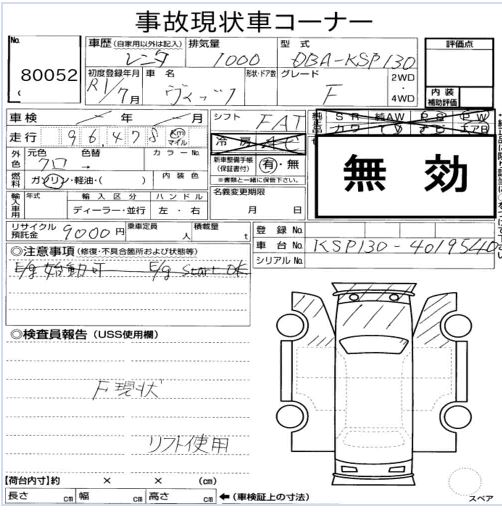 事故現状車コーナー
No.
80052
車歴 (自家用以外は記入) レンタ
排気量 1000
型式 DBA-KSP130
評価点
初度登録年月 R1/7月
車名 ヴィッツ
形状・ドア数
グレード F
2WD
4WD
内装
補助評価
車検 年 月
シフト FAT
SR 純AW PS PW
カワ ナビ TV エアB
走行 96,478 km マイル
冷房 AC
無効
外色 元色 クロ 色替 → カラーNo.
新車整備手帳 (保証書付) 有・無
※書類と一緒に保管下さい。
燃料 ガソリン・軽油・( ) 内装色
名義変更期限
月 日
輸入車用 年式 輸入区分 ハンドル
ディーラー・並行 左・右
リサイクル預託金 9000 円
乗車定員 人
積載量 t
登録No.
車台No. KSP130-4019540
シリアルNo.
◎注意事項 (修復・不具合箇所および状態等)
E/g始動可 E/g start OK
◎検査員報告 (USS使用欄)
F現状
リフト使用
【荷台内寸】約 × × (cm)
長さ cm 幅 cm 高さ cm ←(車検証上の寸法)
スペア